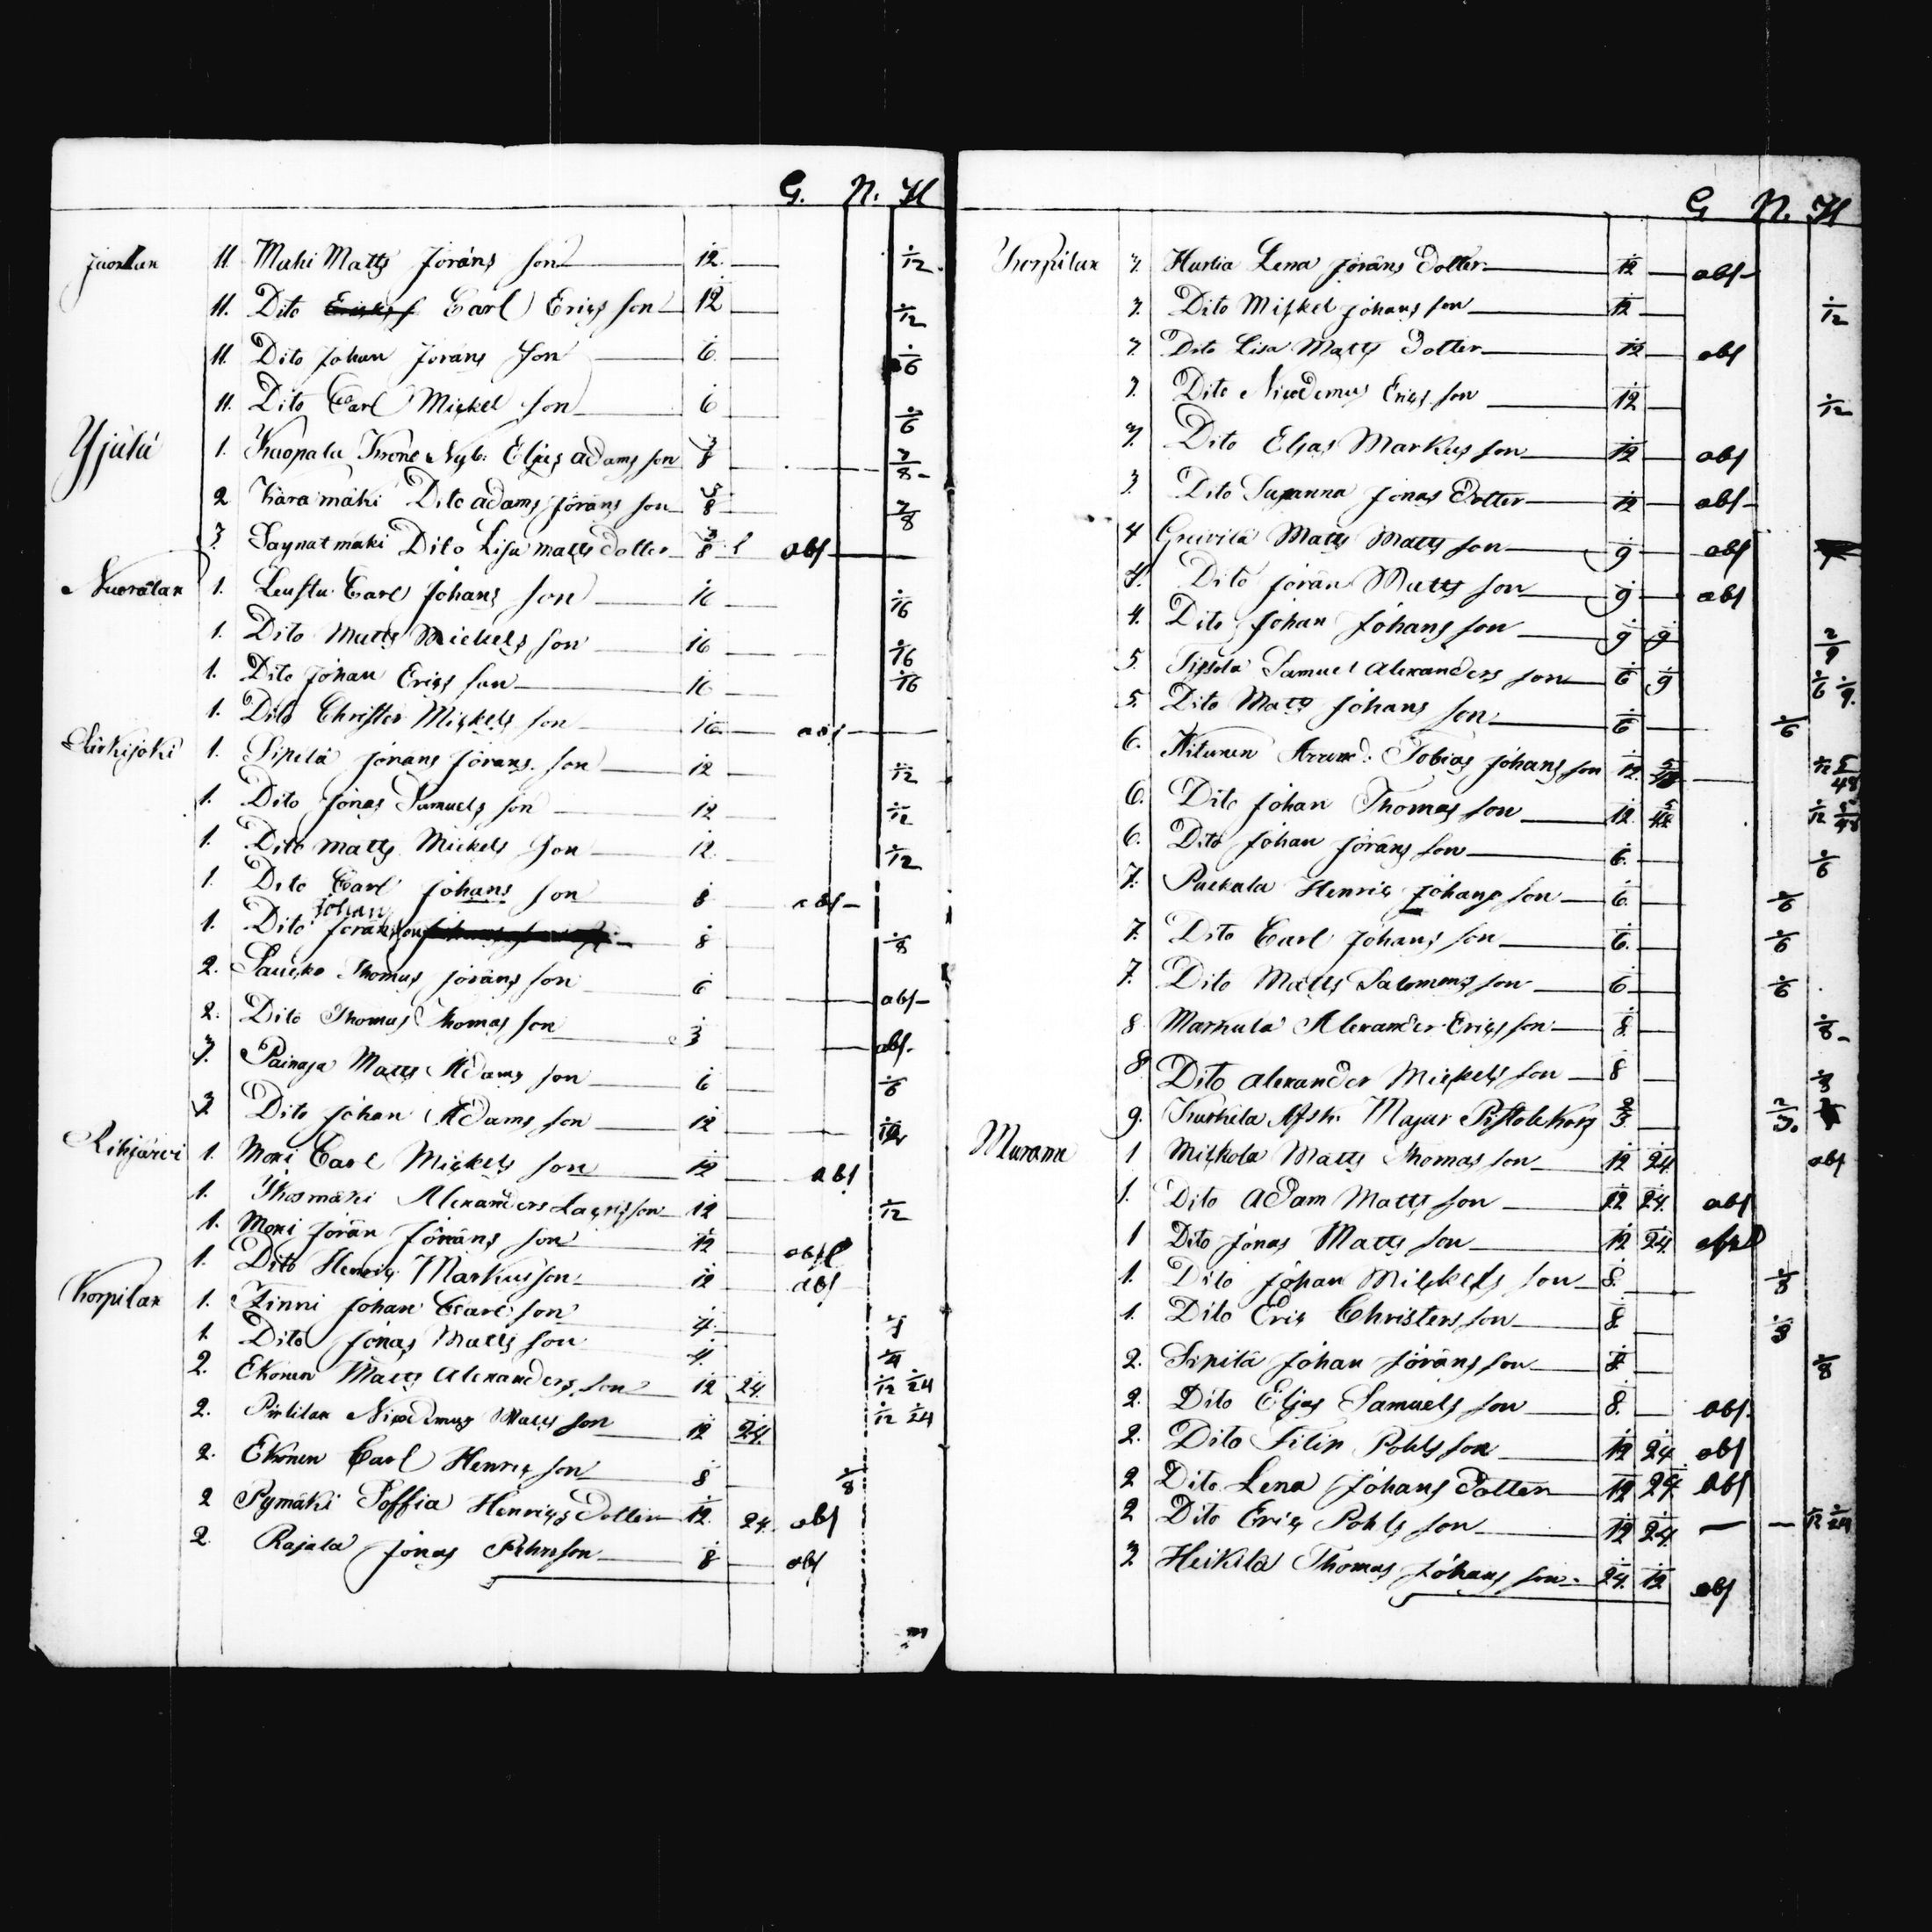 G. N. H
Juonlan 11. Mahi Matts Jörans son 12. 1/12.
11. Dito Carl Erics son 12 1/12
11. Dito Johan Jörans son 6. 1/6
11. Dito Carl Mickel son 6 1/6
Yjälä 1. Knopala Krono Nyb. Elias adams son 3/8 3/8
2 Karamäki Dito adams Jörans son 3/8 3/8
3. Saynatmäki Dito Lisa matts dotter 3/8 abs
Nuorälan 1. Leustu Carl Johans son 16 1/16
1. Dito Matts Mickels son 16 1/16
1. Dito Johan Erics son 16 1/16
1. Dito Christer Mickels son 16 abs
Särkijoki 1. Sipilä Jörans Jörans son 12 1/12
1. Dito Jonas Samuels son 12 1/12
1. Dito matts Mickels son 12. 1/12
1. Dito Carl Johans son 8 abs
Johan
1. Dito Jöransson 8 1/8
2. Saucko Thomas Jörans son 6 abs
2. Dito Thomas Thomas son 3 abs.
3. Painaja Matts Adams son 6 1/6
3. Dito Johan Adams son 12 1/12
Rihjärvi 1. Moxi Carl Mickels son 12 abs
1. Skosmäki Alexanders Lagris son 12 1/12
1. Moxi Jöran Jörans son 12 abs
1. Dito Henric Markusson 12 abs
Korpilax 1. Zinni Johan Carl son 4. 1/4
1. Dito Jonas Matts son 4. 1/4
2. Ekonen Matts Alexanders son 12 24. 1/12 1/24
2. Pirtilax Nicodemus Matts son 12 24. 1/12 1/24
2. Ekonen Carl Henric son 8 1/8
2 Pymäki Soffia Henrics Dotter 12. 24. abs
2. Rajala Jonas Pehrsson 8 abs
G N. H
Korpilax 3. Hurtia Lena Jörans Dotter 12 abs
3. Dito Mickel Johans son 12 1/12
3. Dito Lisa Matts Dotter 12 abs
3. Dito Nicodemus Erics son 12 1/12
3. Dito Elias Markus son 12 abs
3. Dito Susanna Jonas Dotter 12 abs
4 Greivilä Matts Matts son 9 abs
4. Dito Jöran Matts son 9 abs
4. Dito Johan Johans son 9 9 2/9
5. Samuel Alexanders son 6 9 1/6 1/9.
5. Dito Matts Johans son 6 1/6
6. Kitunen Arrend: Tobias Johans son 12. 5/48 1/12 5/48
6. Dito Johan Thomas son 12. 5/48 1/12 5/48
6. Dito Johan Jörans son 6. 1/6
7. Packala Henric Johans son 6. 1/6
7. Dito Carl Johans son 6. 1/6
7. Dito Matts Salomons son 6 1/6
8 Markula Alexander Erics son 8. 1/8
8 Dito Alexander Mickels son 8 1/8
9. Kurkila Afsk. Major Pistolekors 2/3 2/3.
Murame 1 Mickola Matts Thomas son 12 24. abs
1. Dito Adam Matts son 12 24. abs
1 Dito Jonas Matts son 12 24.
1. Dito Johan Mickels son 8. 1/8
1. Dito Eric Christers son 8. 1/8
2. Sipilä Johan Jörans son 8. 1/8
2. Dito Elias Samuels son 8. abs.
2. Dito Filip Pohls son 12 24 abs
2 Dito Lena Johans Dotter 12 24. abs
2 Dito Eric Pohls son 12 24. 1/12 1/24
3 Heikilä Thomas Johans son 24. 12 abs